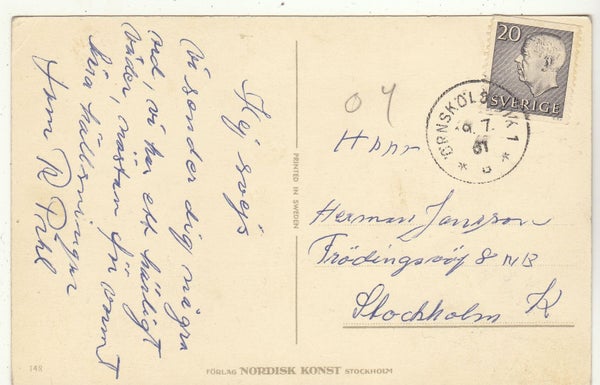 Hej svejs
vi sender dig några
ord, vi har ett härligt
väder, nästan för varmt
kära hälsningar
PRINTED IN SWEDEN
20
SVERIGE
ÖRNSKÖLDSVIK 1
7.
61
04
Herr
Herman Jansson
Frödingsväg 8 NB
Stockholm K
148
FÖRLAG NORDISK KONST STOCKHOLM